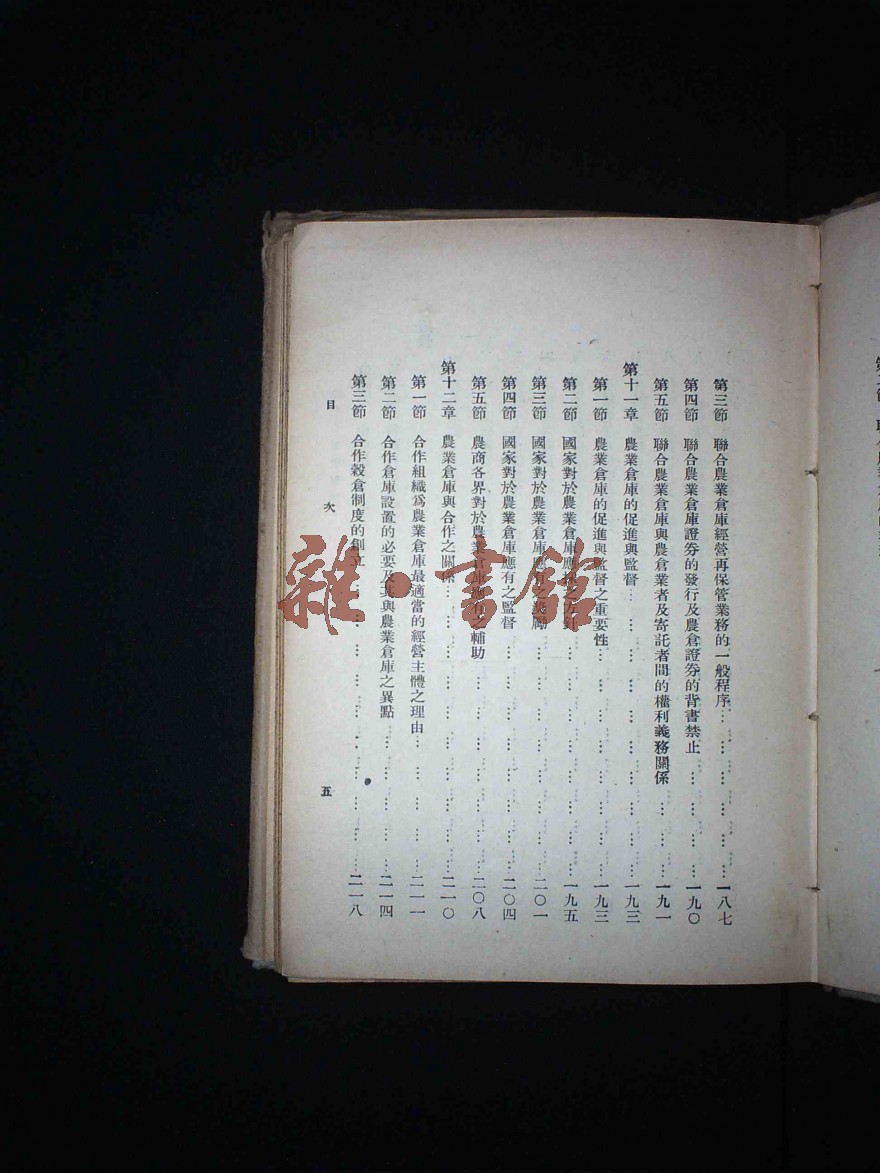 第三節　聯合農業倉庫經營再保管業務的一般程序……一八七
第四節　聯合農業倉庫證券的發行及農倉證券的背書禁止……一九〇
第五節　聯合農業倉庫與農倉業者及寄託者間的權利義務關係……一九一
第十一章　農業倉庫的促進與監督……一九三
第一節　農業倉庫的促進與監督之重要性……一九三
第二節　國家對於農業倉庫應……一九五
第三節　國家對於農業倉庫應有之獎勵……二〇一
第四節　國家對於農業倉庫應有之監督……二〇四
第五節　農商各界對於農業倉庫應有之輔助……二〇八
第十二章　農業倉庫與合作之關係……二一〇
第一節　合作組織爲農業倉庫最適當的經營主體之理由……二一一
第二節　合作倉庫設置的必要及其與農業倉庫之異點……二一四
第三節　合作穀倉制度的創立……二一八
目次　五
雜·書館